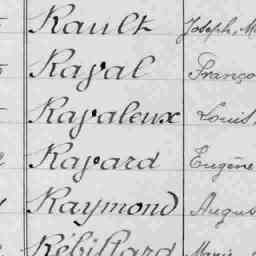 Rault Joseph, M
Rayal Franço
Rayaleux Louis
Rayard Eugène
Raymond Augus
Rébillard Marie